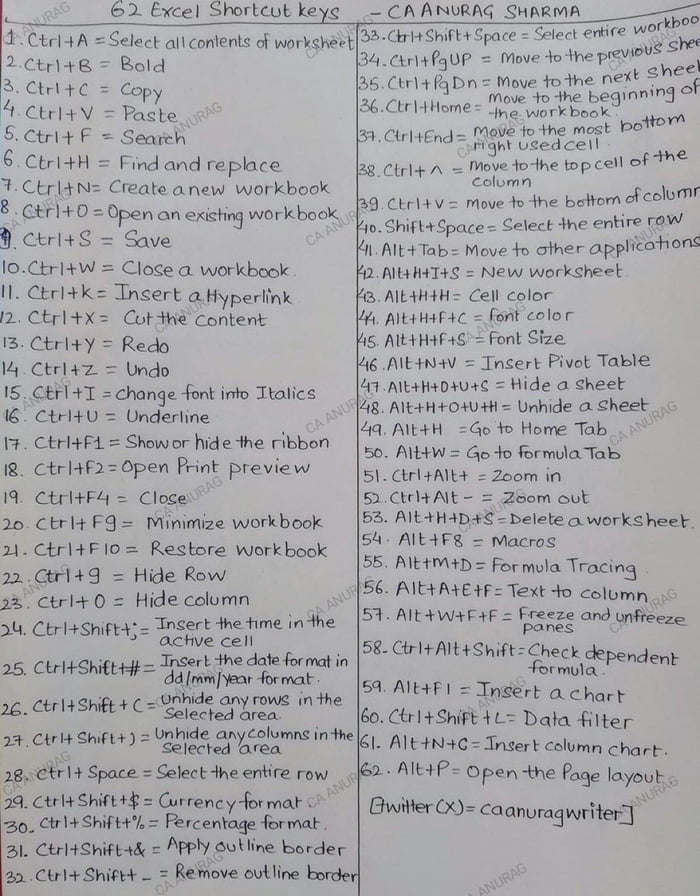 62 Excel Shortcut keys - CA ANURAG SHARMA
1. Ctrl+A = Select all contents of worksheet
2. Ctrl+B = Bold
3. Ctrl+C = Copy
4. Ctrl+V = Paste
5. Ctrl+F = Search
6. Ctrl+H = Find and replace
7. Ctrl+N = Create a new workbook
8. Ctrl+O = Open an existing workbook
9. Ctrl+S = Save
10. Ctrl+W = Close a workbook.
11. Ctrl+k = Insert a Hyperlink
12. Ctrl+x = Cut the Content
13. Ctrl+y = Redo
14. Ctrl+Z = Undo
15. Ctrl+I = change font into Italics
16. Ctrl+U = Underline
17. Ctrl+F1 = Show or hide the ribbon
18. Ctrl+F2 = Open Print preview
19. Ctrl+F4 = Close
20. Ctrl+F9 = Minimize workbook
21. Ctrl+F10 = Restore workbook
22. Ctrl+9 = Hide Row
23. Ctrl+0 = Hide column
24. Ctrl+Shift+; = Insert the time in the
active cell
25. Ctrl+Shift+# = Insert the date format in
dd/mm/year format.
26. Ctrl+Shift+( = Unhide any rows in the
Selected area
27. Ctrl+Shift+) = Unhide any columns in the
selected area
28. Ctrl+Space = Select the entire row
29. Ctrl+Shift+$ = Currency format
30. Ctrl+Shift+% = Percentage format.
31. Ctrl+Shift+& = Apply outline border
32. Ctrl+Shift+_ = Remove outline border
33. Ctrl+Shift+Space = Select entire workboo
34. Ctrl+PgUP = Move to the previous shee
35. Ctrl+PgDn = Move to the next sheet
36. Ctrl+Home = Move to the beginning of
the workbook.
37. Ctrl+End = Move to the most bottom
right used cell.
38. Ctrl+^ = Move to the top cell of the
column
39. Ctrl+v = move to the bottom of column
40. Shift+Space = Select the entire row
41. Alt+Tab = Move to other applications
42. Alt+H+I+S = New worksheet.
43. Alt+H+H = Cell color
44. Alt+H+F+C = font color
45. Alt+H+F+S = Font Size
46. Alt+N+V = Insert Pivot Table
47. Alt+H+O+U+S = Hide a sheet
48. Alt+H+O+U+H = Unhide a Sheet
49. Alt+H = Go to Home Tab
50. Alt+W = Go to formula Tab
51. Ctrl+Alt+ = Zoom in
52. Ctrl+Alt - = Zoom out
53. Alt+H+D+S = Delete a worksheet.
54. Alt+F8 = Macros
55. Alt+M+D = Formula Tracing
56. Alt+A+E+F = Text to column
57. Alt+W+F+F = Freeze and unfreeze
panes
58. Ctrl+Alt+Shift = Check dependent
formula.
59. Alt+F1 = Insert a chart
60. Ctrl+Shift+L = Data filter
61. Alt+N+C = Insert column chart.
62. Alt+P = Open the Page layout
[twitter(X) = caanuragwriter]